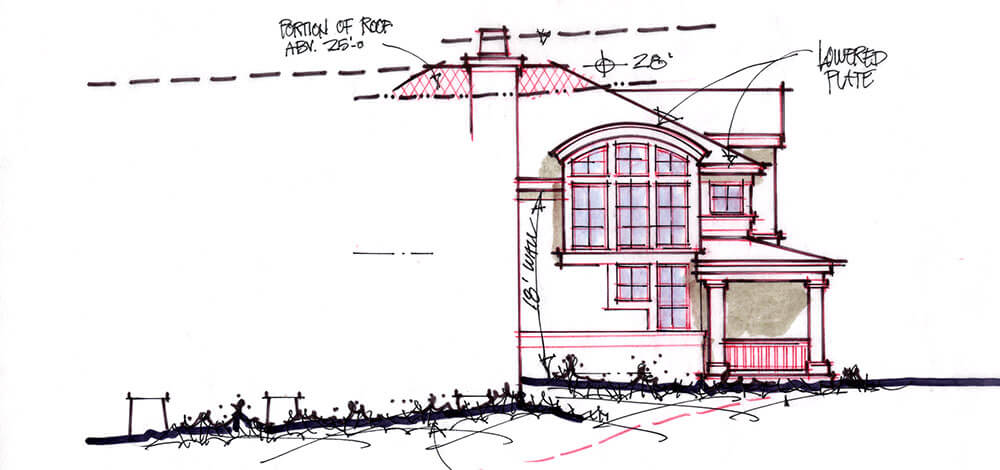 PORTION OF ROOF
ABV. 25'-0
28'
LOWERED
PLATE
18' WALL